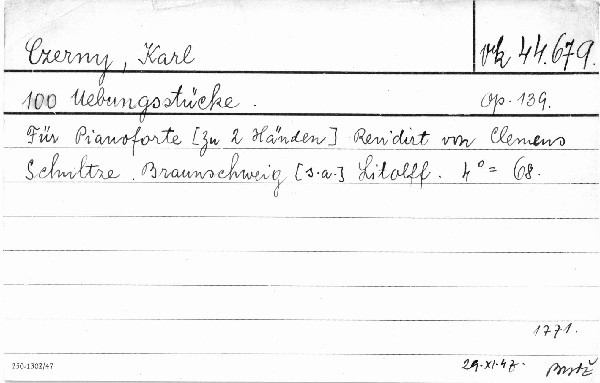 Czerny, Karl vk 44.679.
100 Uebungsstücke. op. 139.
Für Pianoforte [zu 2 Händen] Rev'dirt von Clemens
Schultze. Braunschweig [s.a.] Litolff. 4° = 68.
1771.
250-1302/47 29.XI.47.